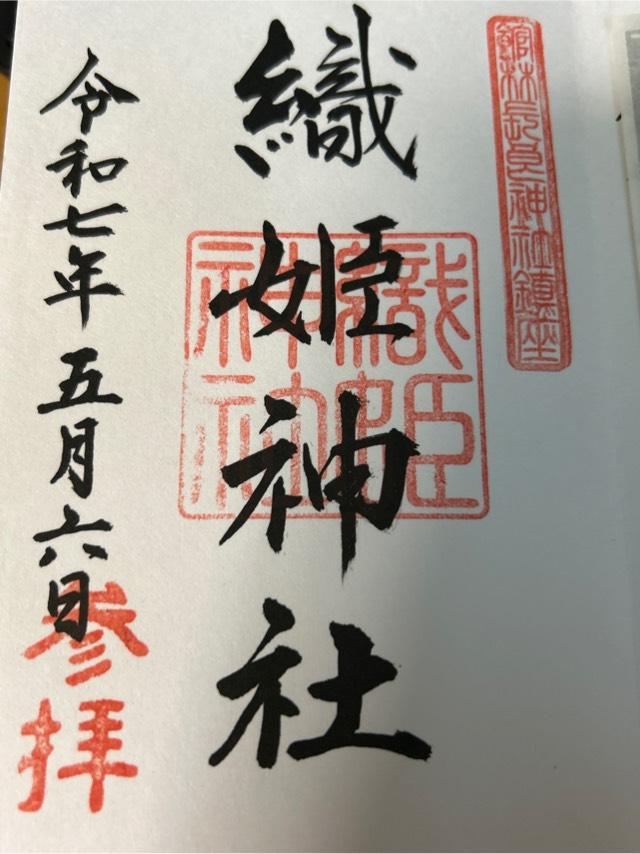 館林長良神社鎮座
織姫神社
織姫神社
令和七年五月六日
参拝